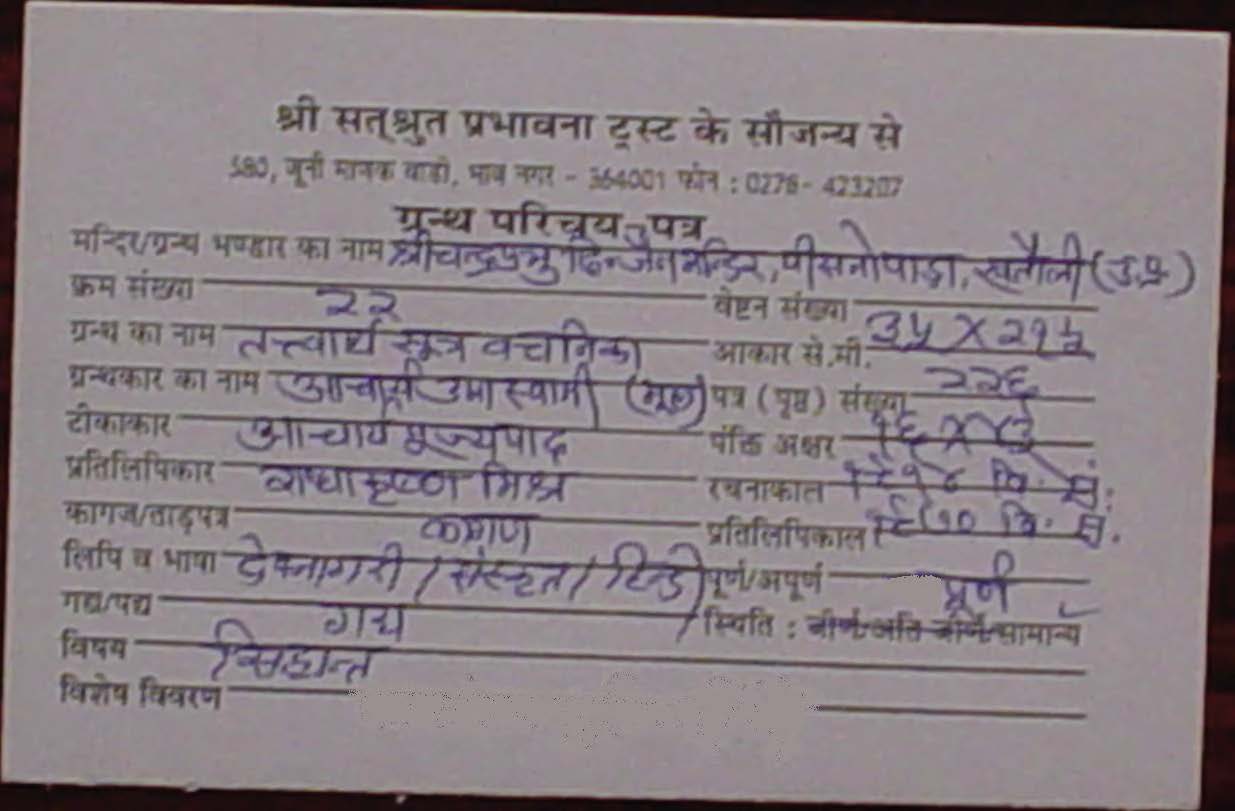 श्री सत्श्रुत प्रभावना ट्रस्ट के सौजन्य से
580, जूनी माणक वाडी, भाव नगर - 364001 फोन : 0278- 423207
ग्रन्थ परिचय-पत्र
मन्दिर/ग्रन्थ भण्डार का नाम श्री चन्द्रप्रभु दि० जैन मन्दिर, पीसनोपाड़ा, खतौली (उ.प्र.)
क्रम संख्या २२ वेष्टन संख्या
ग्रन्थ का नाम तत्त्वार्थ सूत्र वचनिका आकार से.मी. ३५ X २१
ग्रन्थकार का नाम आचार्य उमास्वामी (मूल) पत्र (पृष्ठ) संख्या २२६
टीकाकार आचार्य पूज्यपाद पंक्ति अक्षर
प्रतिलिपिकार राधाकृष्ण मिश्र रचनाकाल वि. सं.
कागज/ताड़पत्र कागज प्रतिलिपिकाल १९७० वि. सं.
लिपि व भाषा देवनागरी / संस्कृत / हिन्दी पूर्ण/अपूर्ण पूर्ण
गद्य/पद्य गद्य स्थिति : जीर्ण/अति जीर्ण/सामान्य ✓
विषय सिद्धान्त
विशेष विवरण